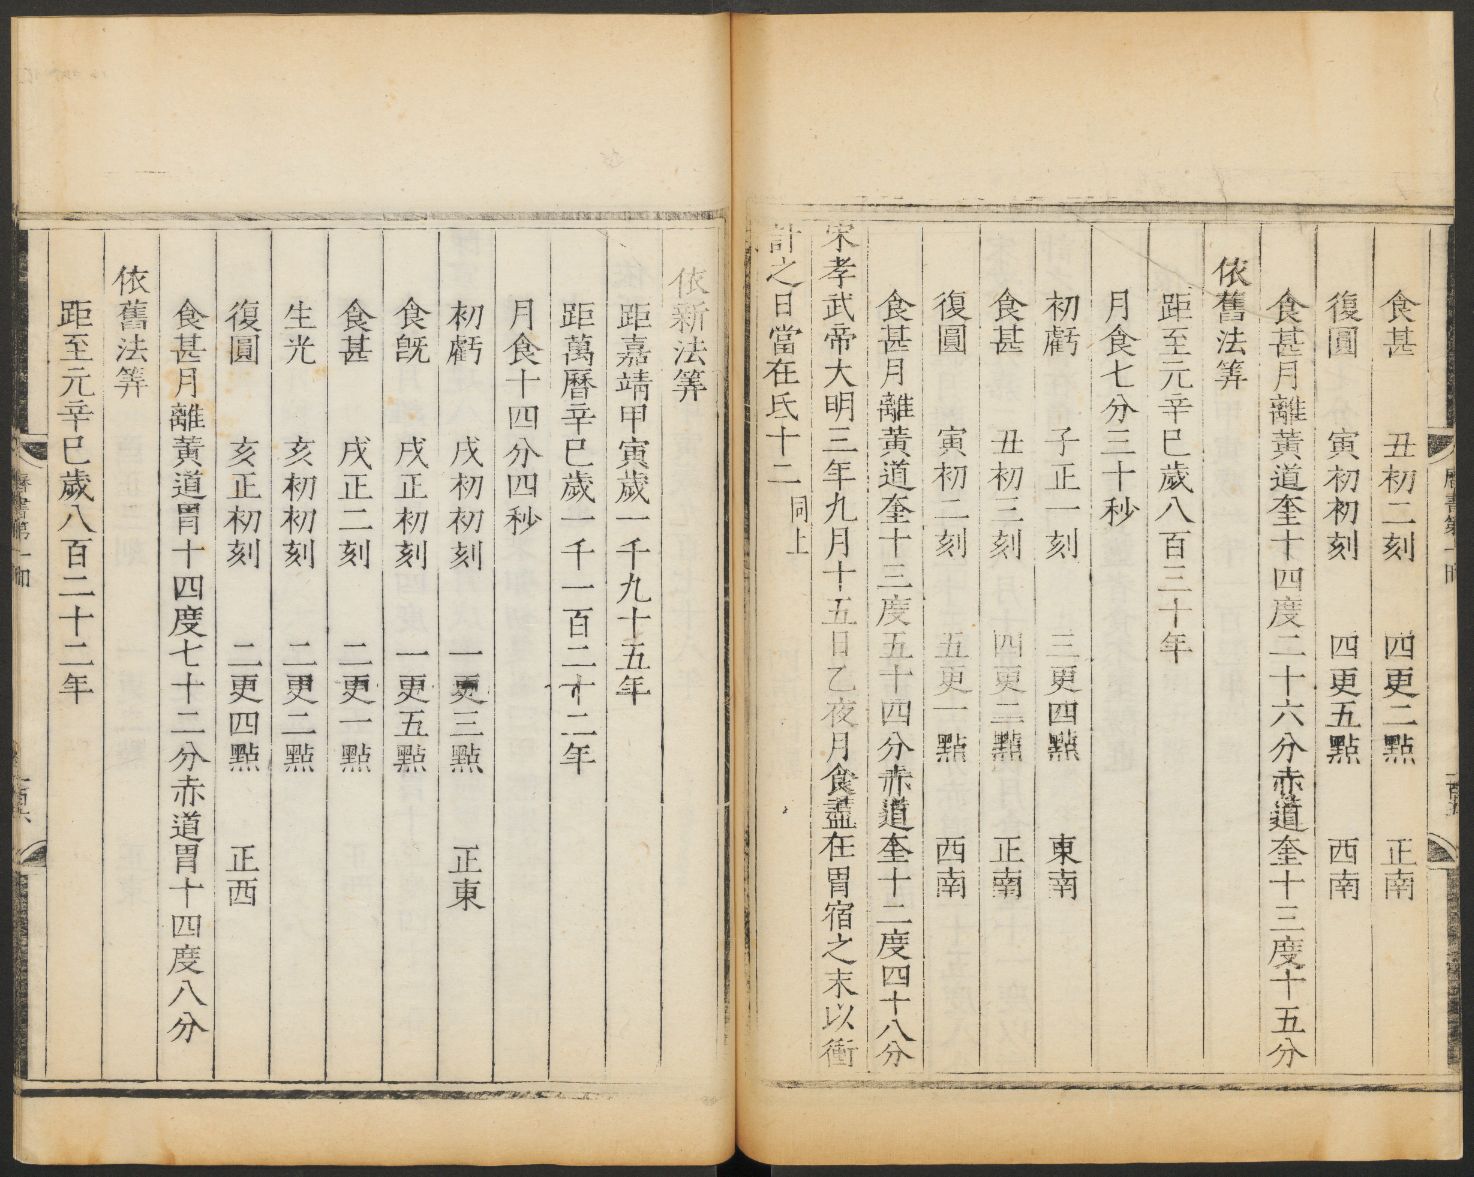 食甚　丑初二刻　四更二點　正南
復圓　寅初初刻　四更五點　西南
食甚月離黃道奎十四度二十六分赤道奎十三度十五分
依舊法筭
距至元辛巳歲八百三十年
月食七分三十秒
初虧　子正一刻　三更四點　東南
食甚　丑初三刻　四更二點　正南
復圓　寅初二刻　五更一點　西南
食甚月離黃道奎十三度五十四分赤道奎十二度四十八分
宋孝武帝大明三年九月十五日乙夜月食盡在胃宿之末以衝
計之日當在氐十二同上
依新法筭
距嘉靖甲寅歲一千九十五年
距萬曆辛巳歲一千一百二十二年
月食十四分四秒
初虧　戌初初刻　一更三點　正東
食旣　戌正初刻　一更五點
食甚　戌正二刻　二更一點
生光　亥初初刻　二更二點
復圓　亥正初刻　二更四點　正西
食甚月離黃道胃十四度七十二分赤道胃十四度八分
依舊法筭
距至元辛巳歲八百二十二年